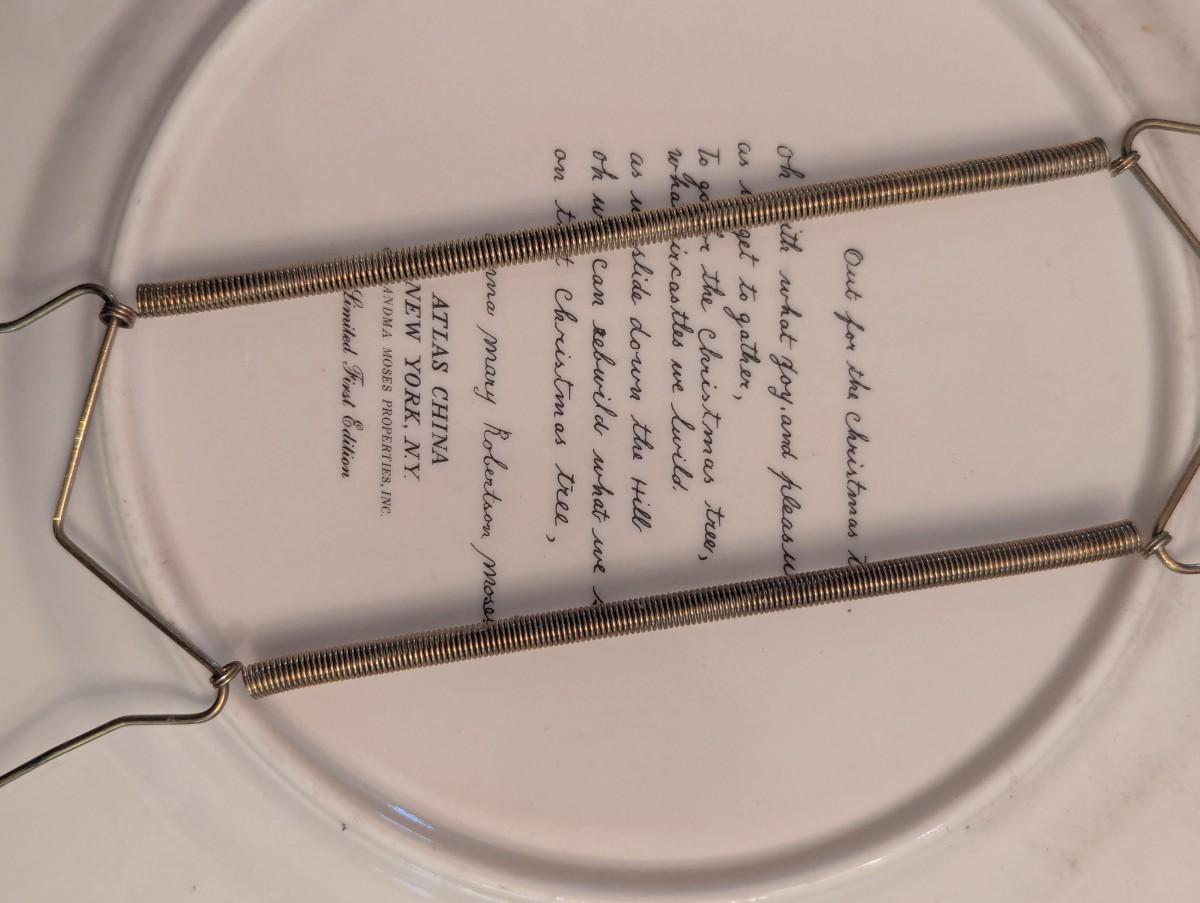 Out for the Christmas
oh with what goy, and
as get to gather,
To go for the Christmas tree,
what aircastles we bwild.
as we slide down the Hill
oh we can rebwild what we
on that christmas tree,
mary Robertson moses
ATLAS CHINA
NEW YORK, N.Y.
GRANDMA MOSES PROPERTIES, INC.
Limited First Edition